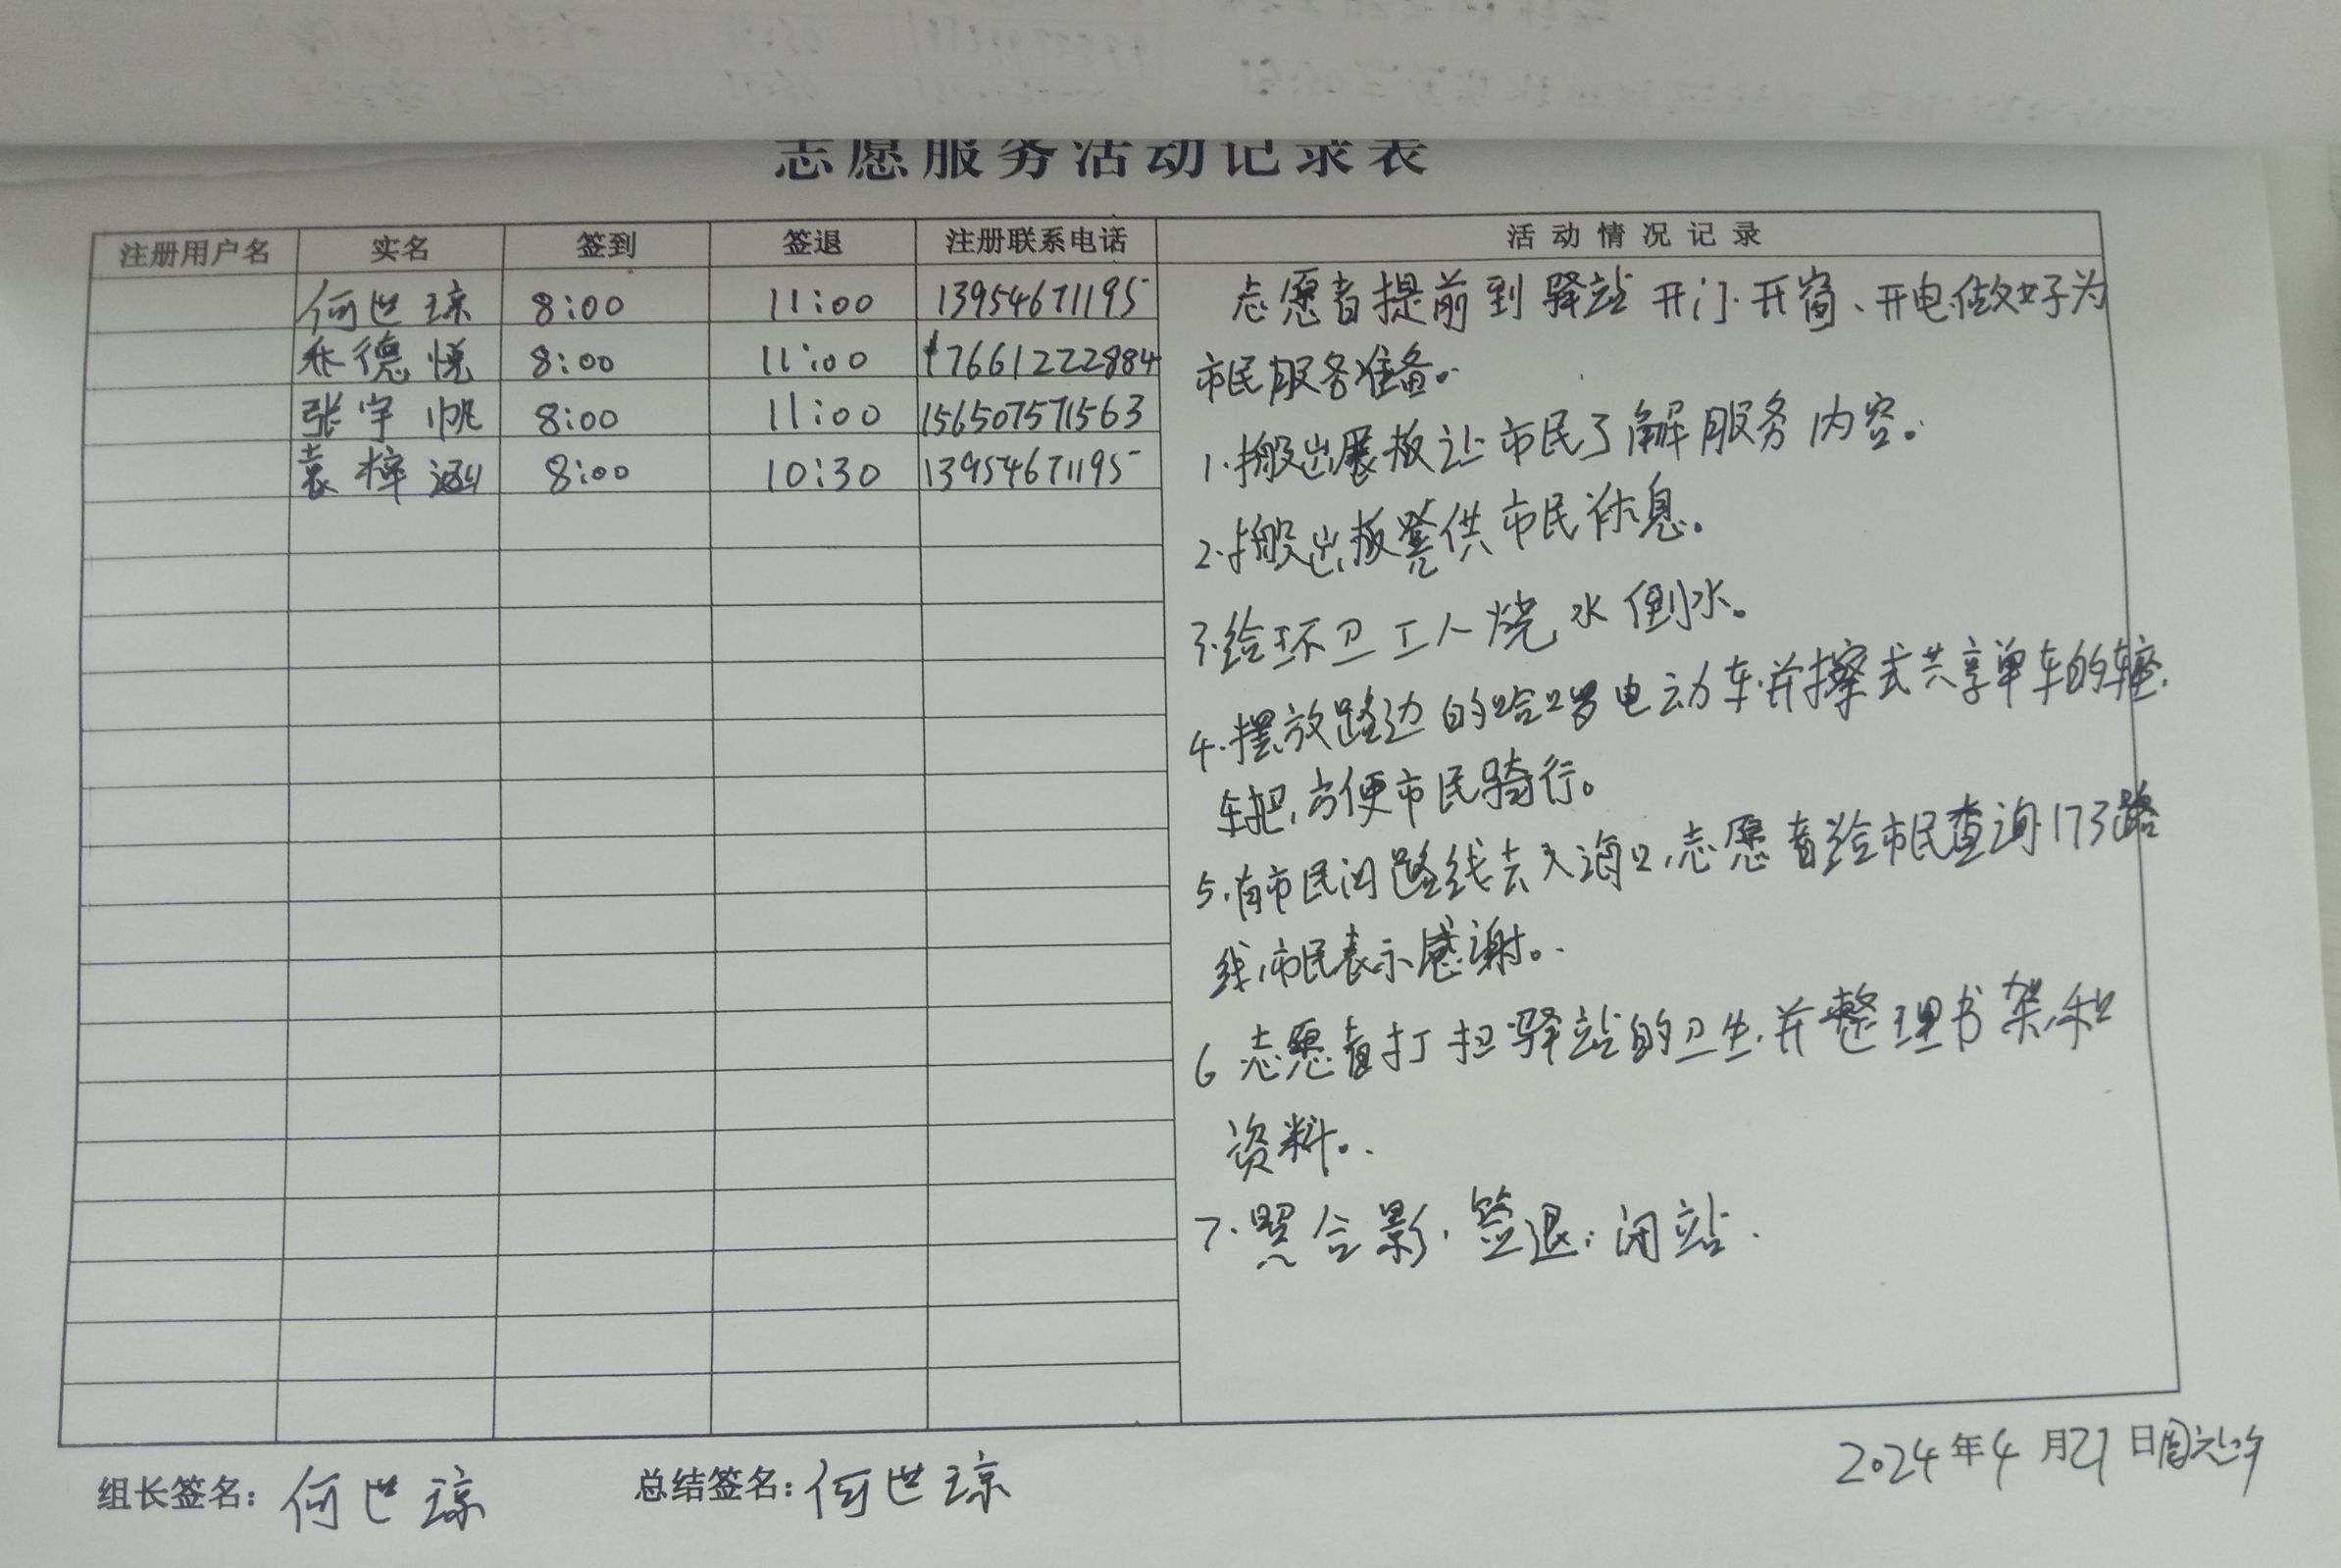 志愿服务活动记录表
注册用户名 实名 签到 签退 注册联系电话 活动情况记录
何世琼 8:00 11:00 13954671195
德悦 8:00 11:00 17661222884
张宇帆 8:00 11:00 156507571563
袁梓涵 8:00 10:30 13954671195
志愿者提前到驿站开门.开窗、开电.做好为
市民服务准备。
1.搬出展板让市民了解服务内容。
2.搬出板凳供市民休息。
3.给环卫工人烧水倒水。
4.摆放路边的哈啰电动车.并擦式共享单车的座.
车把,方便市民骑行。
5.有市民问路线去入海口,志愿者给市民查询173路
线,市民表示感谢。
6 志愿者打扫驿站的卫生,并整理书架,和
资料。
7.照合影.签退;闭站.
组长签名:何世琼 总结签名:何世琼 2024年4月21日周